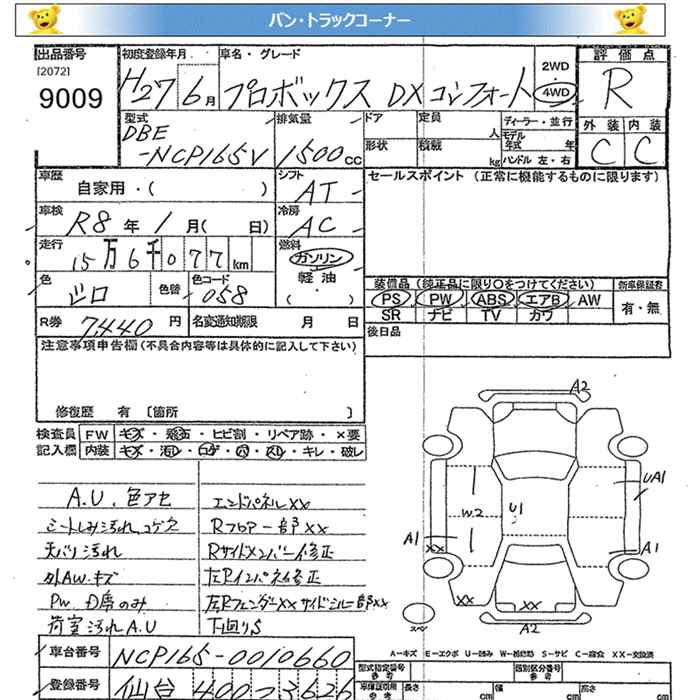 バン・トラックコーナー
出品番号
[2072]
9009
初度登録年月
H27 6月
車名・グレード
プロボックス DX コンフォート
2WD
4WD
評価点
R
外装 内装
C C
型式
DBE
-NCP165V
排気量
1500cc
ドア 定員
人
ディーラー・並行
モデル
年式 年
形状 積載
kg
ハンドル 左・右
車歴
自家用・( )
シフト
AT
セールスポイント (正常に機能するものに限ります)
車検
R8年 1月( 日)
冷房
AC
走行
15万6千077km
燃料
ガソリン
軽油
( )
色
シロ
色替
色コード
058
装備品 (純正品に限り○をつけてください)
新車保証書
PS PW ABS エアB AW
有・無
SR ナビ TV カワ
R券 7440円
名変通知期限 月 日
後日品
注意事項申告欄(不具合内容等は具体的に記入して下さい)
修復歴 有 〔箇所 〕
検査員
記入欄
FW キズ・飛石・ヒビ割・リペア跡・×要
内装 キズ・汚れ・コゲ・穴・スレ・キレ・破レ
A.U. 色アセ
シートしみ汚れ、コゲ穴
天バリ汚れ
外AW.キズ
PW D席のみ
荷室汚れA.U
エンドパネルXX
Rフロアー部XX
Rサイドメンバー修正
左Rインパネ修正
左RフェンダーXX サイドシル一部XX
下回りS
A2
UA1
W2
U1
A1
XX
A1
XX
XX
スペア
A2
A-キズ E-エクボ U-凹み W-補修跡 S-サビ C-腐食 XX-交換済
車台番号
NCP165-0010660
登録番号
仙台 400 ... 3626
型式指定番号
参考
類別区分番号
参考
車庫証明用
参考
長さ
cm
幅
cm
高さ
cm